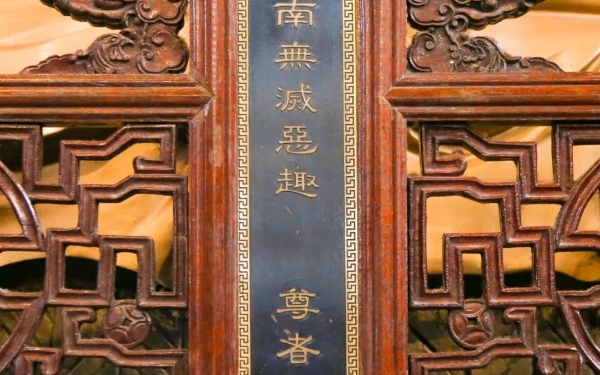 南無滅惡趣 尊者